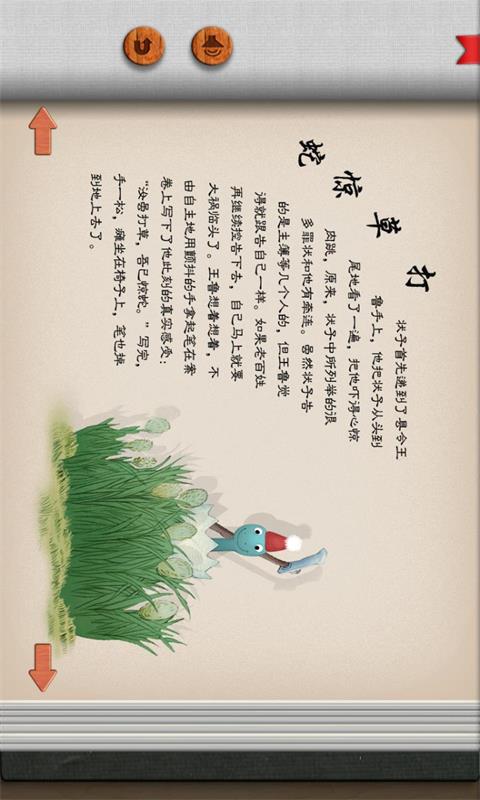 打草惊蛇
状子首先递到了县令王
鲁手上，他把状子从头到
尾地看了一遍，把他吓得心惊
肉跳，原来，状子中所列举的很
多罪状和他有牵连。虽然状子告
的是主簿等几个人的，但王鲁觉
得就跟告自己一样。如果老百姓
再继续控告下去，自己马上就要
大祸临头了。王鲁想着想着，不
由自主地用颤抖的手拿起笔在案
卷上写下了他此刻的真实感受：
“汝虽打草，吾已惊蛇。”写完，
手一松，瘫坐在椅子上，笔也掉
到地上去了。